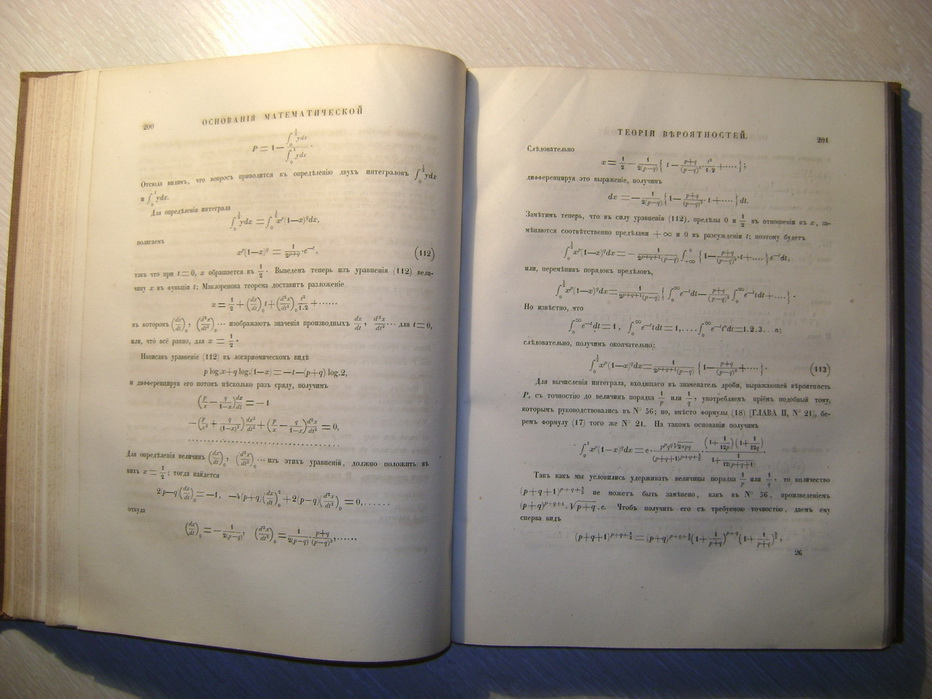 200
ОСНОВАНІЯ МАТЕМАТИЧЕСКОЙ
P = 1 − ∫₀^½ ydx / ∫₀^1 ydx .
Отсюда видимъ, что вопросъ приводится къ опредѣленію двухъ интеграловъ ∫₀^½ ydx
и ∫₀^1 ydx.
Для опредѣленія интеграла
∫₀^½ ydx = ∫₀^½ xᵖ(1−x)^q dx,
полагаемъ
xᵖ(1−x)^q = 1/2^{p+q} · e^{−t}, (112)
такъ что при t=0, x обращается въ 1/2. Выведемъ теперь изъ уравненія (112) вели-
чину x въ функціи t; Маклоренова теорема доставитъ разложеніе
x = 1/2 + (dx/dt)₀ t + (d²x/dt²)₀ t²/1.2 + ······
въ которомъ (dx/dt)₀, (d²x/dt²)₀ ··· изображаютъ значенія производныхъ dx/dt, d²x/dt² ··· для t=0,
или, что всё равно, для x = 1/2.
Написавъ уравненіе (112) въ логариѳмическомъ видѣ
p log.x+q log.(1−x) = −t−(p+q) log.2,
и дифференцируя его потомъ нѣсколько разъ сряду, получимъ
(p/x − q/(1−x)) dx/dt = −1
−(p/x² + q/(1−x)²) dx²/dt² + (p/x − q/(1−x)) d²x/dt² = 0,
································
Для опредѣленія величинъ (dx/dt)₀, (d²x/dt²)₀ ··· изъ этихъ уравненій, должно положить въ
нихъ x = 1/2; тогда найдется
2(p−q)(dx/dt)₀ = −1, −4(p+q)(dx/dt)₀² + 2(p−q)(d²x/dt²)₀ = 0, ......
откуда
(dx/dt)₀ = − 1/2(p−q), (d²x/dt²)₀ = 1/2(p−q) · (p+q)/(p−q)², ......
ТЕОРІИ ВѢРОЯТНОСТЕЙ.
201
Слѣдовательно
x = 1/2 − 1/2(p−q) { t − (p+q)/(p−q)² · t²/1.2 + ···· } ;
дифференцируя это выраженіе, получимъ
dx = − 1/2(p−q) { 1 − (p+q)/(p−q)² · t + ···· } dt.
Замѣтимъ теперь, что въ силу уравненія (112), предѣлы 0 и 1/2 въ отношеніи къ x, за-
мѣняются соотвѣтственно предѣлами +∞ и 0 въ разсужденіи t; поэтому будетъ
∫₀^½ xᵖ(1−x)^q dx = − 1/2^{p+q+1}(p−q) ∫_{+∞}^0 { 1 − (p+q)/(p−q)² t + ···· } e^{−t} dt,
или, перемѣнивъ порядокъ предѣловъ,
∫₀^½ xᵖ(1−x)^q dx = 1/2^{p+q+1}(p−q) { ∫₀^∞ e^{−t} dt − (p+q)/(p−q)² ∫₀^∞ e^{−t} t dt + ···· } .
Но извѣстно, что
∫₀^∞ e^{−t} dt = 1, ∫₀^∞ e^{−t} t dt = 1, .... ∫₀^∞ e^{−t} tⁿ dt = 1.2.3...n;
слѣдовательно, получимъ окончательно;
∫₀^½ xᵖ(1−x)^q dx = 1/2^{p+q+1}(p−q) { 1 − (p+q)/(p−q)² + ···· } . (113)
Для вычисленія интеграла, входящаго въ знаменатель дроби, выражающей вѣроятность
P, съ точностью до величинъ порядка 1/p или 1/q, употребляемъ пріёмъ подобный тому,
которымъ руководствовались въ N° 56; но, вмѣсто формулы (18) [ГЛАВА II, N° 21], бе-
ремъ формулу (17) того же N° 21. На такомъ основаніи получимъ
∫₀^1 xᵖ(1−x)^q dx = e · pᵖ q^q √2πpq / (p+q+1)^{p+q+3/2} · (1+1/12p)(1+1/12q) / 1+1/12(p+q+1) .
Такъ какъ мы условились удерживать величины порядка 1/p или 1/q, то количество
(p+q+1)^{p+q+3/2} не можетъ быть замѣнено, какъ въ N° 56, произведеніемъ
(p+q)^{p+q+1} . √p+q . e. Чтобъ получить его съ требуемою точностію, даемъ ему
сперва видъ
(p+q+1)^{p+q+3/2} = (p+q)^{p+q+3/2} (1+1/(p+q))^{p+q} (1+1/(p+q))^{3/2},
26